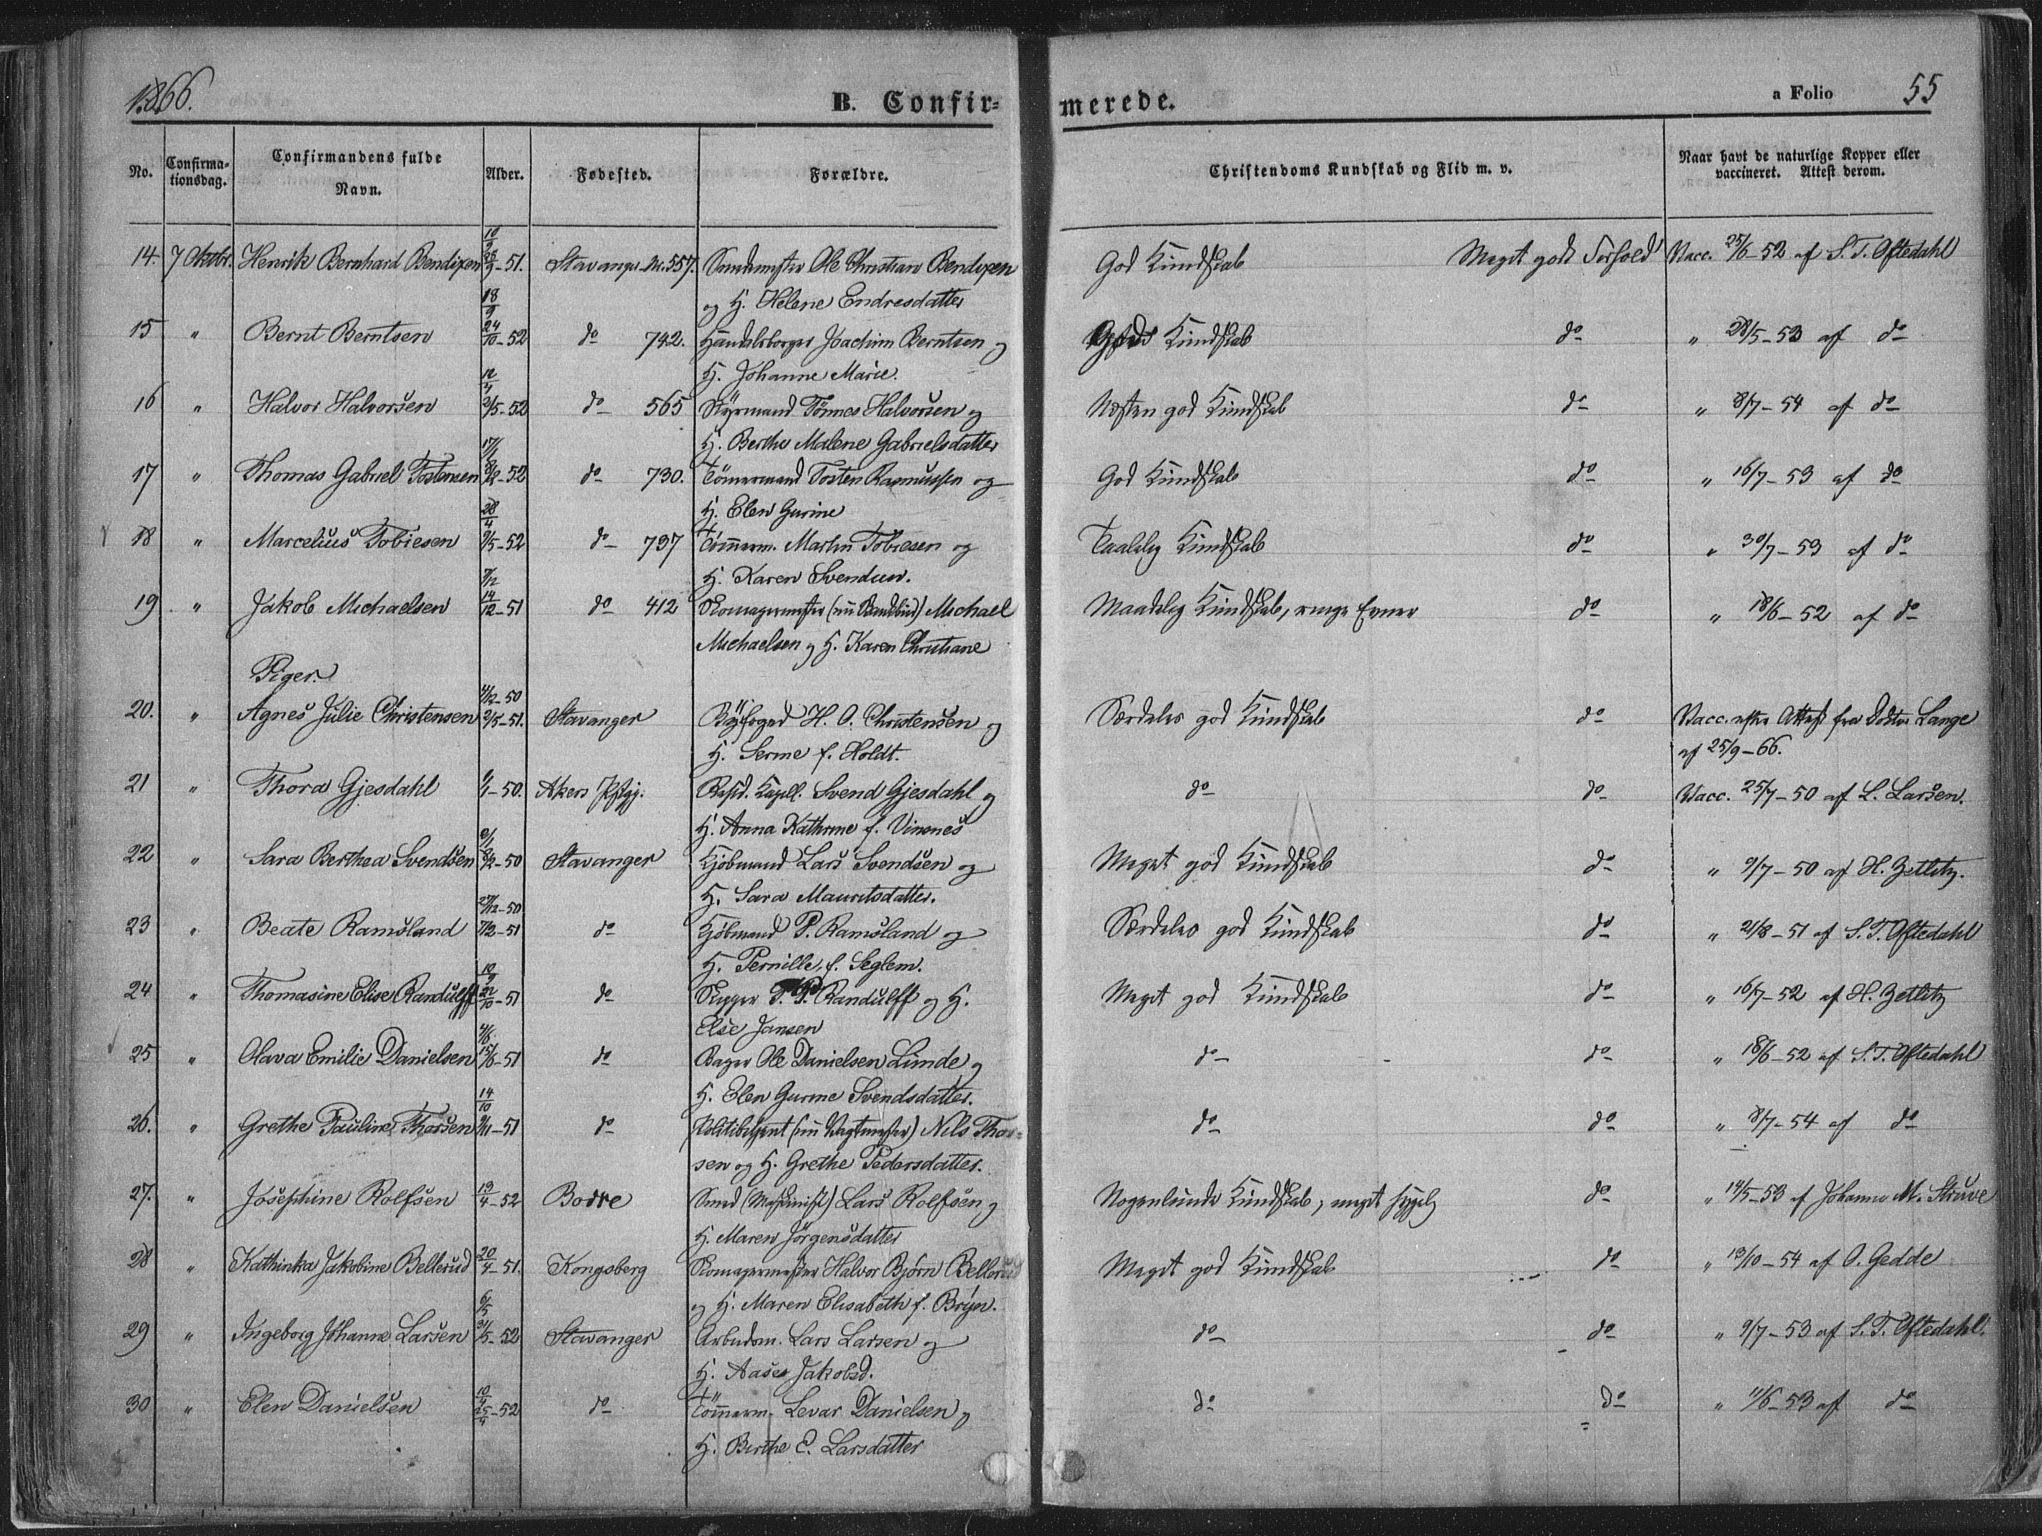 1866.
B. Confir-
merede.
a Folio 55
No. Confirma-tionsdag. Confirmandens fulde Navn. Alder. Fødested. Forældre. Christendoms Kundskab og Flid m. v. Naar havt de naturlige Kopper eller vaccineret. Attest derom.
14. 7 Oktobr. Henrik Bernhard Bendixen 10/9 -51. Stavanger Nr. 557. Ole Christian Bendixen God Kundskab Meget godt Forhold Vacc. 25/6-52 af S. T. Oftedahl
og H. Helene Endresdatter
15 " Bernt Berntsen 18/9 24/10-52 do 742. Handelsborger Joachim Berntsen og Gods Kundskab do " 28/5-53 af do
H. Johanne Marie.
16 " Halvor Halvorsen 12/4 2/5-52 do 565 Styrmand Tönnes Halvorsen og Næsten god Kundskab do " 8/7-54 af do
H. Berthe Malene Gabrielsdatter
17 " Thomas Gabriel Tostensen -52 do 730. Tömmermand Tosten Rasmussen og God Kundskab do " 16/7-53 af do
H. Elen Gurine
18 " Marcelius Tobiesen 28/4 9/5-52 do 737 Tömmerm. Martin Tobiesen og Taalelig Kundskab do " 30/7-53 af do
H. Karen Svendsen.
19 " Jakob Michaelsen 7/12 14/12-51 do 412 Skomagermester (nu Landbud) Michael Maadelig Kundskab, ringe Evner do " 18/6-52 af do
Michaelsen og H. Karen Christiane
Piger.
20. " Agnes Julie Christensen 4/12-50 2/5-51. Stavanger Byfoged H. O. Christensen og Særdeles god Kundskab do Vacc. efter Attest fra Doktor Lange
H. Serine f. Holdt. af 25/9-66.
21 " Thora Gjesdahl -50. Akers Resid. Kapell. Svend Gjesdahl og do do Vacc. 25/7-50 af L. Larsen.
H. Anna Kathrine f. Vinsnes
22 " Sara Berthea Svendsen -50 Stavanger Kjöbmand Lars Svendsen og Meget god Kundskab do " 9/7-50 af H. Zetlitz.
H. Sara Mauritsdatter.
23 " Beate Ramsland 27/12-50 7/2-51 do Kjöbmand P. Ramsland og Særdeles god Kundskab do " 21/8-51 af S. T. Oftedahl
H. Pernille, f. Seglem.
24 " Thomasine Elise Randulff 10/9 22/10-51 do Skipper T. P. Randulff og H. Meget god Kundskab do " 16/7-52 af H. Zetlitz
Else Jansen
25 " Olava Emilie Danielsen 4/6 15/6-51 do Bager Ole Danielsen Lunde og do do " 18/6-52 af S. T. Oftedahl
H. Elen Gurine Svendsdatter.
26. " Grethe Pauline Thorsen 14/10 9/11-51 do Politibetjent (nu Vagtmester) Nils Thor- do do " 8/7-54 af do
sen og H. Grethe Pedersdatter.
27. " Josephine Rolfsen 13/4-52 Smed (Maskinist) Lars Rolfsen og Nogenlunde Kundskab, meget sygelig do " 14/5-53 af Johanne M. Struve
H. Maren Jörgensdatter
28 " Kathinka Jakobine Bellerud 20/4-51. Kongsberg Skomagermester Halvor Björn Bellerud Meget god Kundskab do " 13/10-54 af O. Gedde
og H. Maren Elisabeth f. Bryn.
29 " Ingeborg Johanne Larsen 6/5 31/5-52 Stavanger Arbeidsm. Lars Larsen og do do " 9/7-53 af S. T. Oftedahl.
H. Aase Jakobsd.
30 " Elen Danielsen 25/4-52 do Tömmerm. Levar Danielsen og do do " 11/6-53 af do
H. Berthe E. Larsdatter